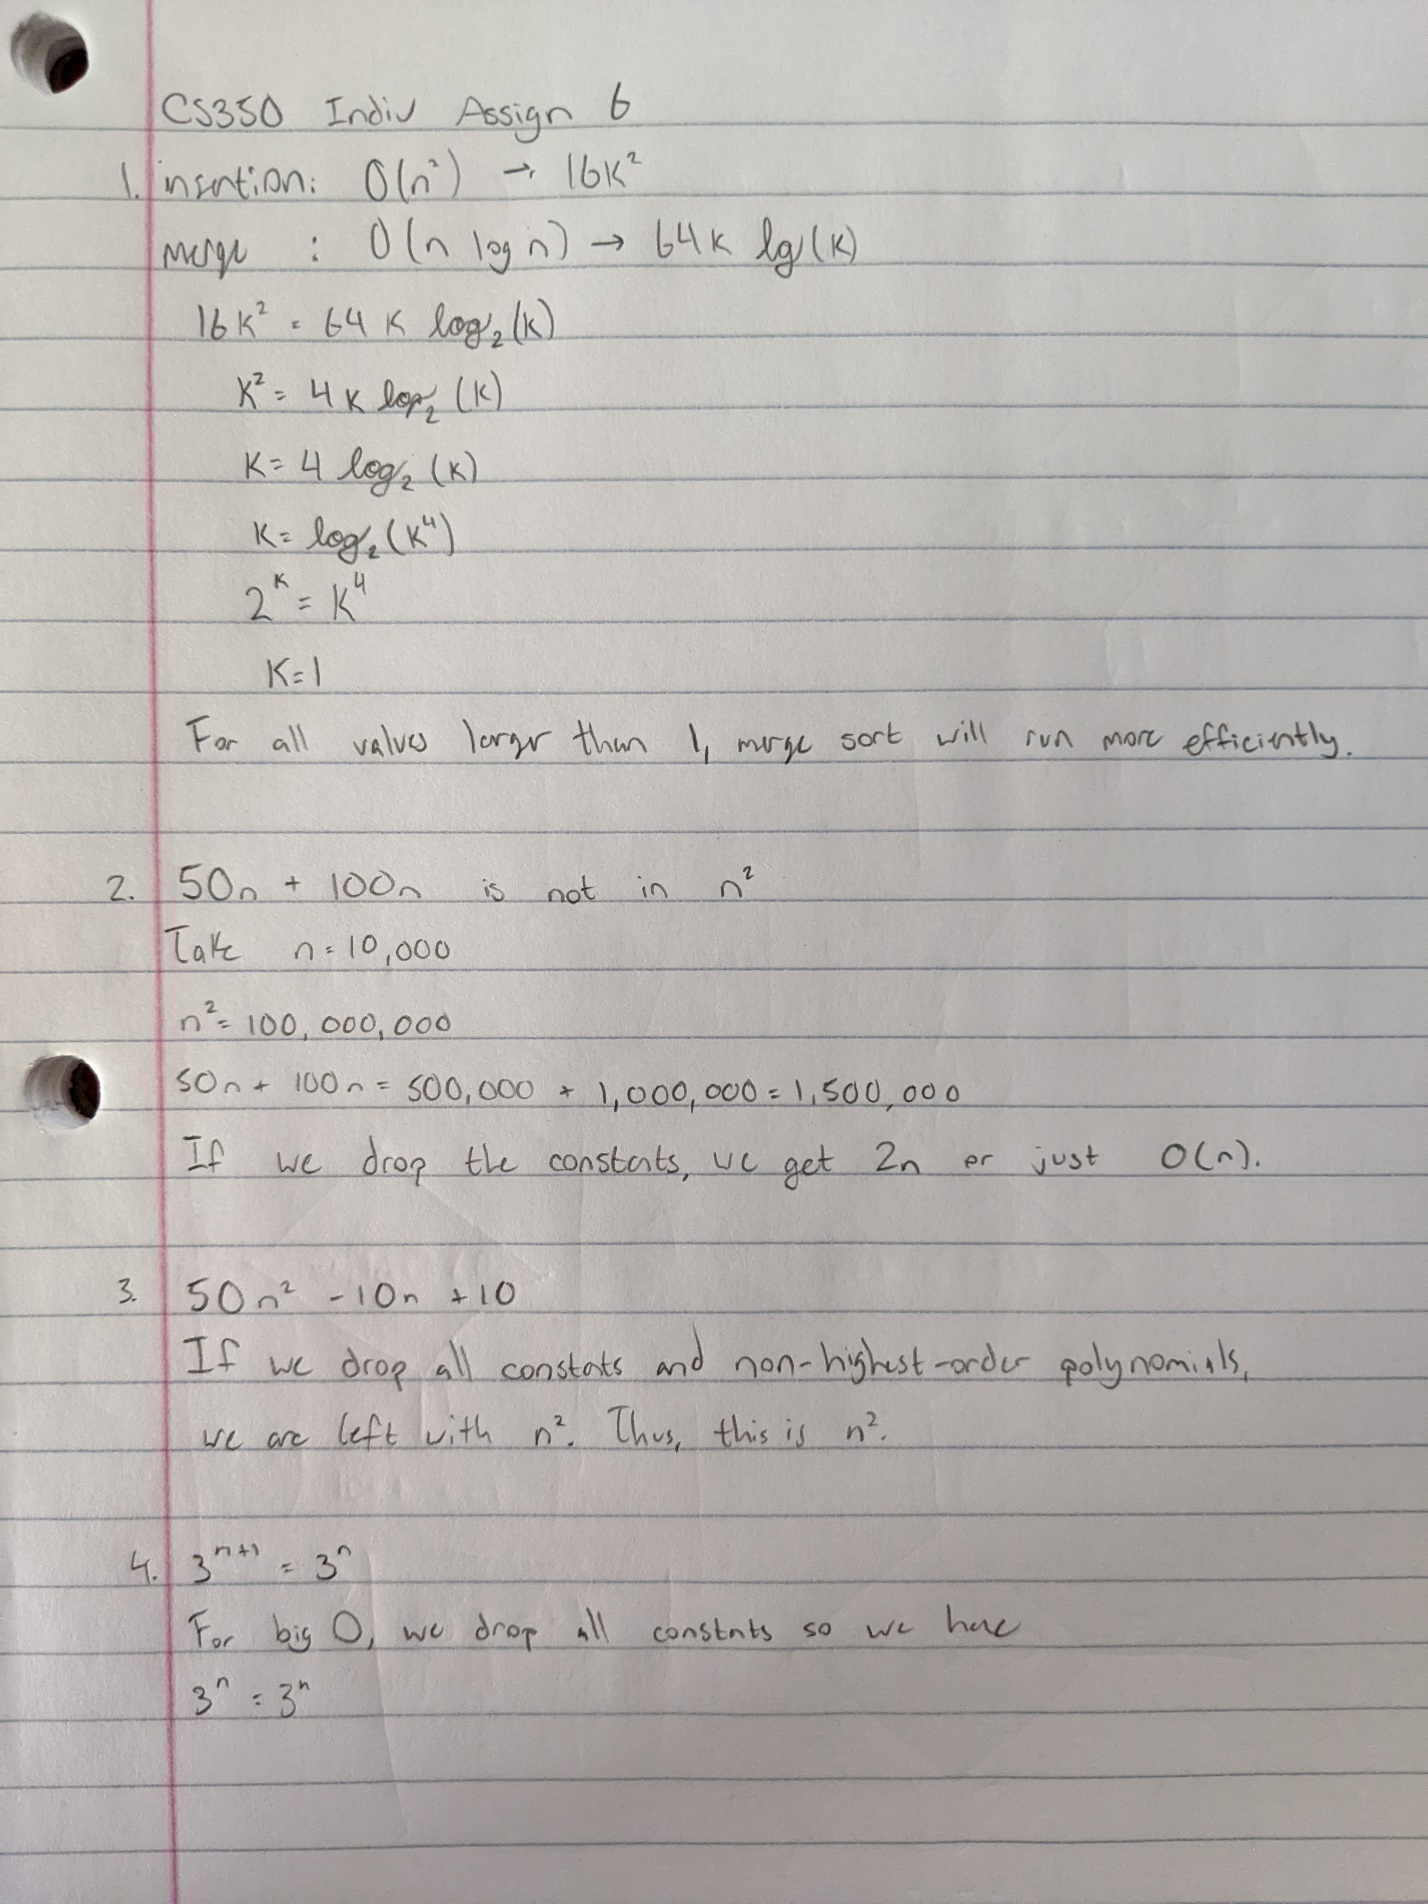 CS350 Indiv Assign 6
1. insertion: O(n²) → 16K²
merge : O(n log n) → 64K lg(K)
16K² = 64 K log₂(K)
K² = 4K log₂(K)
K = 4 log₂(K)
K = log₂(K⁴)
2ᴷ = K⁴
K=1
For all values larger than 1, merge sort will run more efficiently.
2. 50n + 100n is not in n²
Take n=10,000
n² = 100,000,000
50n + 100n = 500,000 + 1,000,000 = 1,500,000
If we drop the constants, we get 2n or just O(n).
3. 50n² - 10n + 10
If we drop all constants and non-highest-order polynomials,
we are left with n². Thus, this is n².
4. 3ⁿ⁺¹ = 3ⁿ
For big O, we drop all constants so we have
3ⁿ = 3ⁿ